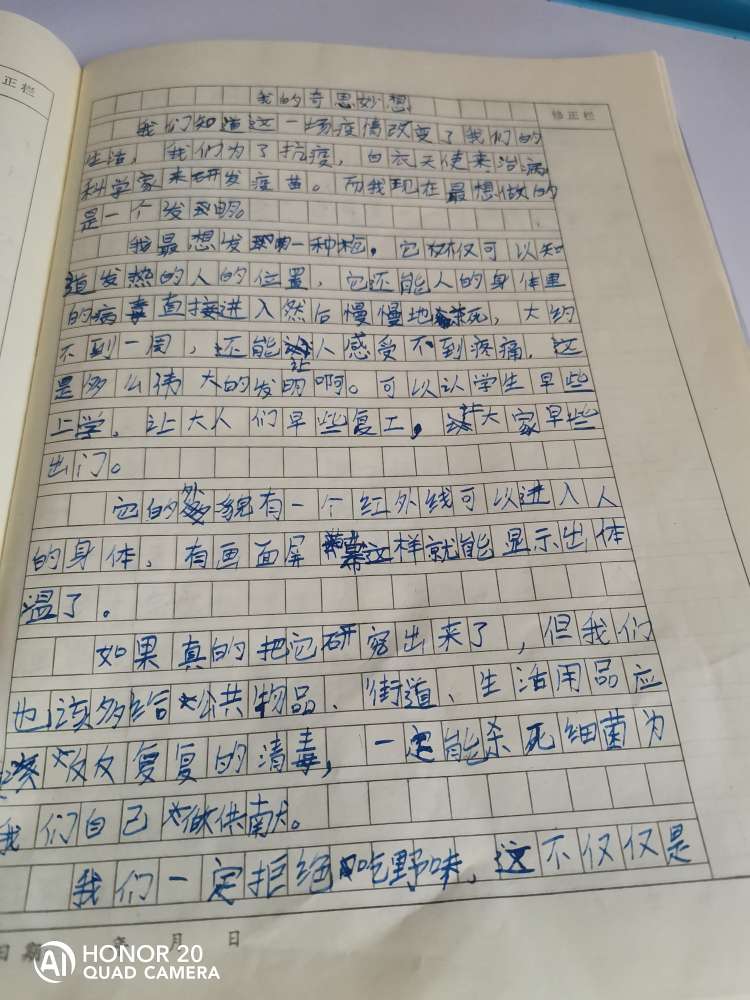 正栏
修正栏
我的奇思妙想
我们知道这一场疫情改变了我们的
生活，我们为了抗疫，白衣天使来治病
科学家来研发疫苗。而我现在最想做的
是一个发明。
我最想发明一种枪，它不仅可以知
道发热的人的位置，它还能人的身体里
的病毒直接进入然后慢慢地杀死，大约
不到一周，还能让人感受不到疼痛，这
是多么伟大的发明啊。可以认学生早些
上学，让大人们早些复工，让大家早些
出门。
它的外貌有一个红外线可以进入人
的身体，有画面屏幕这样就能显示出体
温了。
如果真的把它研究出来了，但我们
也该多给公共物品、街道、生活用品应
该反反复复的清毒，一定能杀死细菌为
我们自己做供献。
我们一定拒绝吃野味，这不仅仅是
日期 年 月 日
HONOR 20
QUAD CAMERA